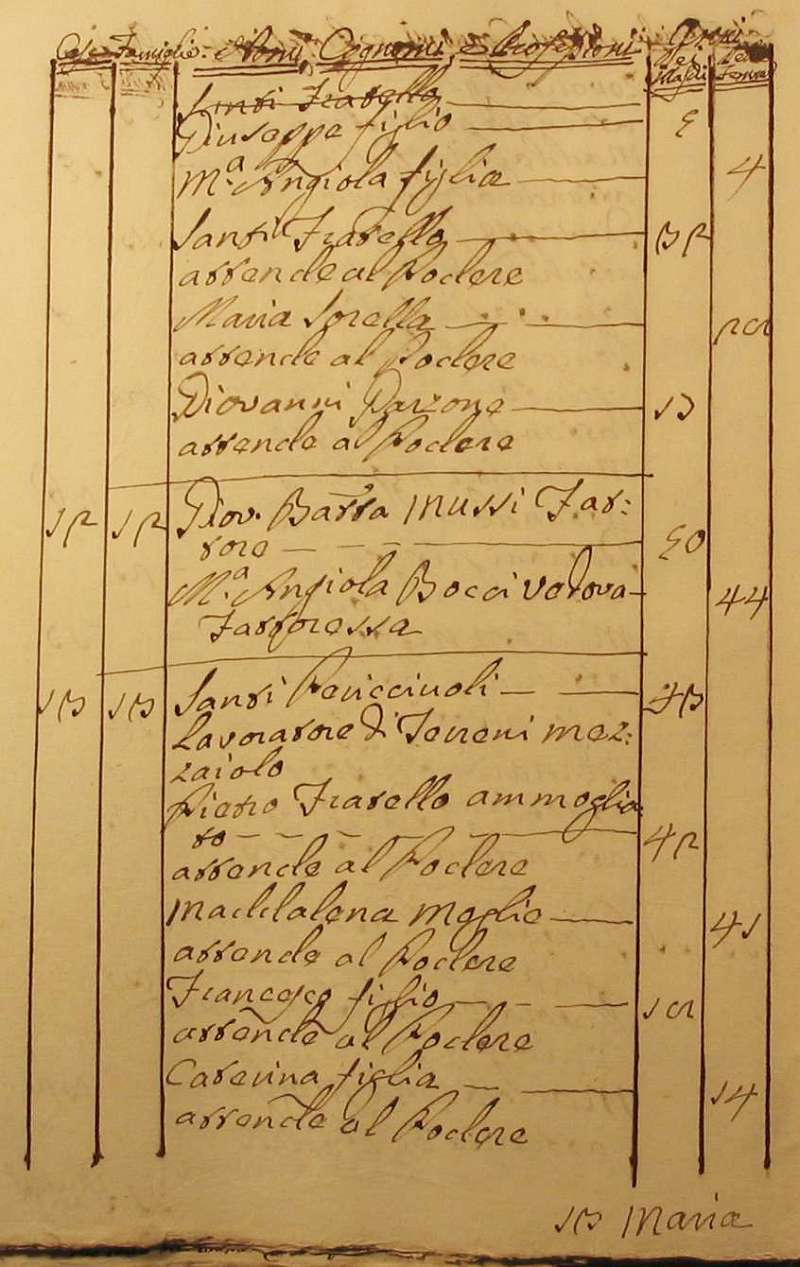 Case Famiglie. Nomi, Cognomi, e Professioni
dei Maschi
Santi Fratello
Giuseppe figlio 5
M.a Angiola figlia 4
Santi Fratello 32
attende al Podere
Maria Sorella
attende al Podere
Giovanni Garzone 13
attende al Podere
12 12 Giov. Batta Mussi Fat:
tore 50
M.a Angiola Bocci vedova 44
Fattoressa
13 13 Santi 43
Lavoratore di Terreni mez:
zaiolo
Pietro Fratello ammoglia
to 42
attende al Podere
Maddalena Moglie 41
attende al Podere
Francesco figlio
attende al Podere
Caterina figlia 14
attende al Podere
13 Maria